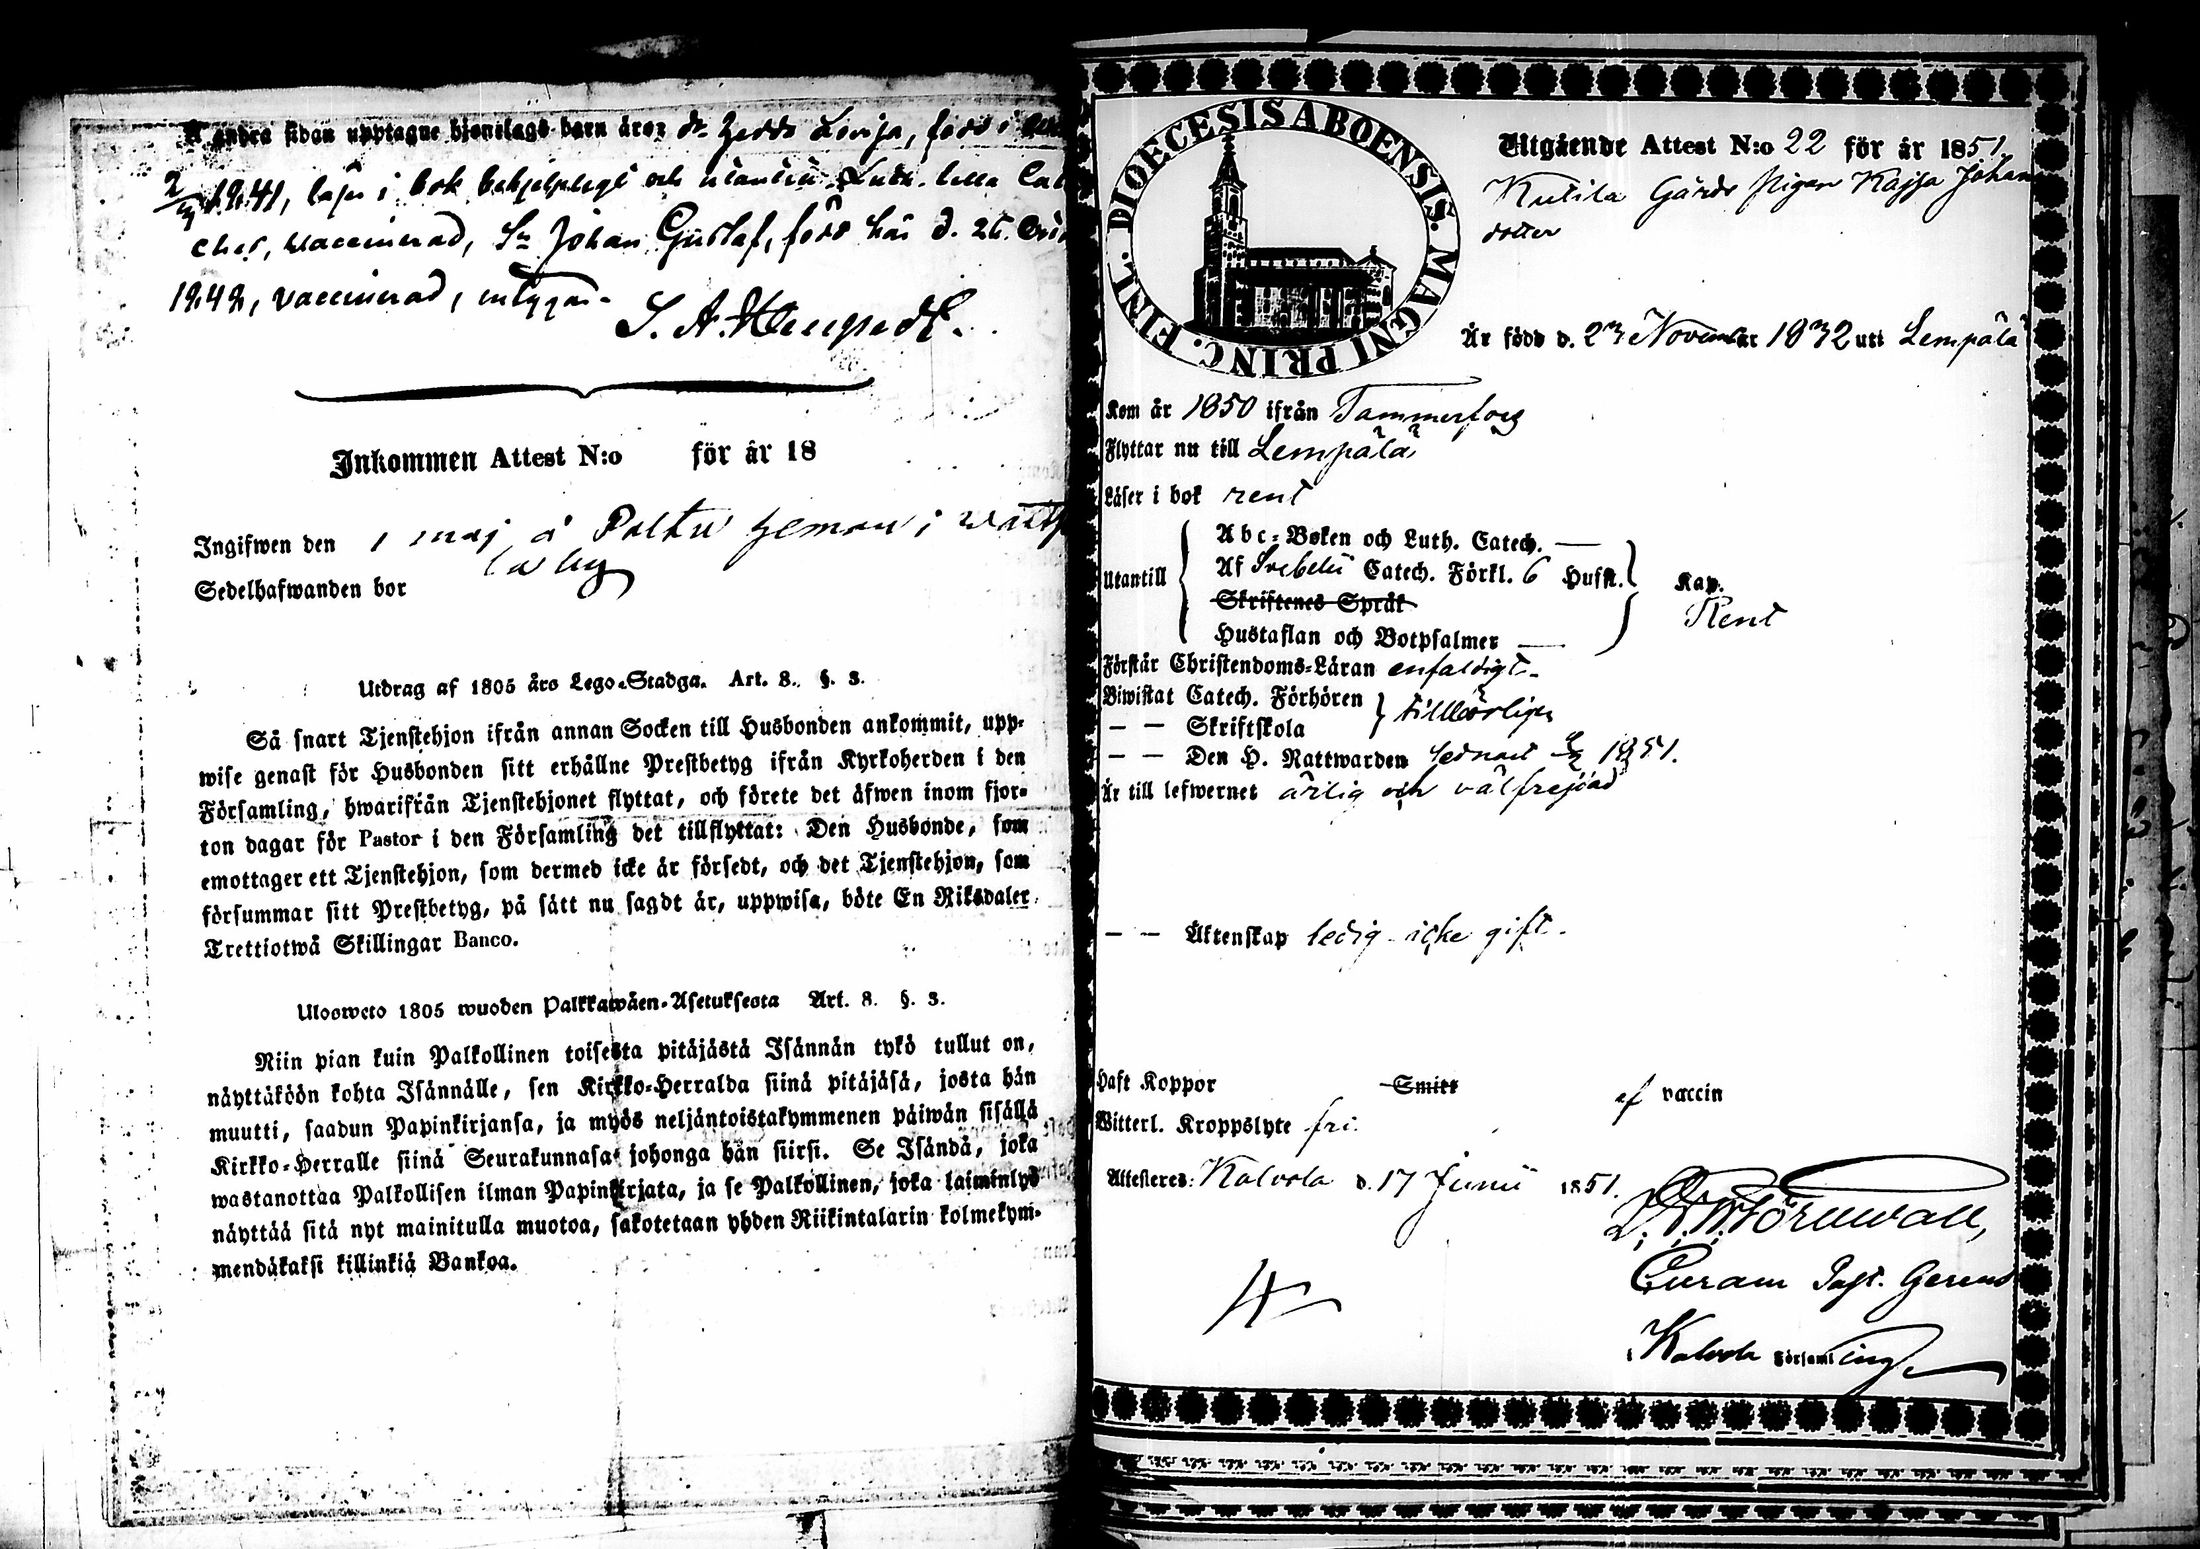 andra sidan upptagne hjonelags barn äro: dr Hedda Lovisa, född i
1841, läser i bok behjelpligt och utantill Luth. lilla Cat
ches, vaccinerad, Sn Johan Gustaf, född här d. 26
1848, vaccinerad, intygar.
Inkommen Attest N:o för år 18
Ingifwen den 1 maj å Paltu hemman i
Sedelhafwanden bor
Utdrag af 1805 års Lego-Stadga. Art. 8. §. 3.
Så snart Tjenstehjon ifrån annan Socken till Husbonden ankommit, upp-
wise genast för Husbonden sitt erhållne Prestbetyg ifrån Kyrkoherden i den
Församling, hwarifrån Tjenstehjonet flyttat, och förete det äfwen inom fjor-
ton dagar för Pastor i den Församling det tillflyttat: Den Husbonde, som
emottager ett Tjenstehjon, som dermed icke är försedt, och det Tjenstehjon, som
försummar sitt Prestbetyg, på sätt nu sagdt är, uppwisa, böte En Riksdaler
Trettiotwå Skillingar Banco.
Ulosweto 1805 wuoden Palkkawäen-Asetuksesta Art. 8. §. 3.
Niin pian kuin Palkollinen toisesta pitäjästä Isännän tykö tullut on,
näyttäköön kohta Isännälle, sen Kirkko-Herralda siinä pitäjäsä, josta hän
muutti, saadun Papinkirjansa, ja myös neljäntoistakymmenen päiwän sisällä
Kirkko-Herralle siinä Seurakunnasa johonga hän siirsi. Se Isändä, joka
wastanottaa Palkollisen ilman Papinkirjata, ja se Palkollinen, joka laiminlyö
näyttää sitä nyt mainitulla muotoa, sakotetaan yhden Riikintalarin kolmekym-
mendäkaksi killinkiä Bankoa.
DIOECESIS ABOENSIS. MAGNI PRINC. FINL.
Utgående Attest N:o 22 för år 1851.
Kutila Gårds Pigan Kajsa Johans
dotter
Är född d. 23 November 1832 uti Lempälä
Kom år 1850 ifrån Tammerfors
Flyttar nu till Lempälä
Läser i bok rent
Abc-Boken och Luth. Catech. —
Utantill Af Svebelii Catech. Förkl. 6 Hufst. Kap.
Skriftenes Språk Rent
Hustaflan och Botpsalmer —
Förstår Christendoms-Läran enfaldigt.
Biwistat Catech. Förhören
— — Skriftskola tillbörligen
— — Den H. Nattwarden sednast 1851.
Är till lefwernet ärlig och välfrejdad
— — Äktenskap ledig icke gift.
Haft Koppor Smitt af vaccin
Witterl. Kroppslyte fri.
Attesteras: Kalvola d. 17 Junii 1851.
Curam Past. Gerens
i Kalvola Församling